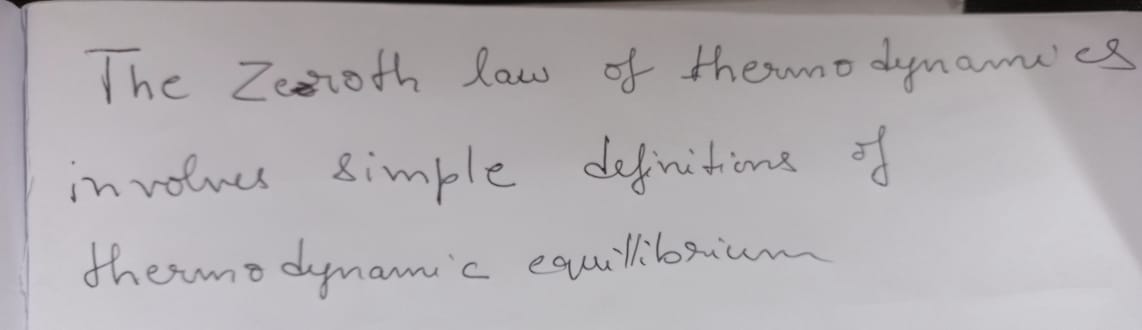 The Zeroth law of thermodynamics
involves simple definitions of
thermodynamic equillibrium